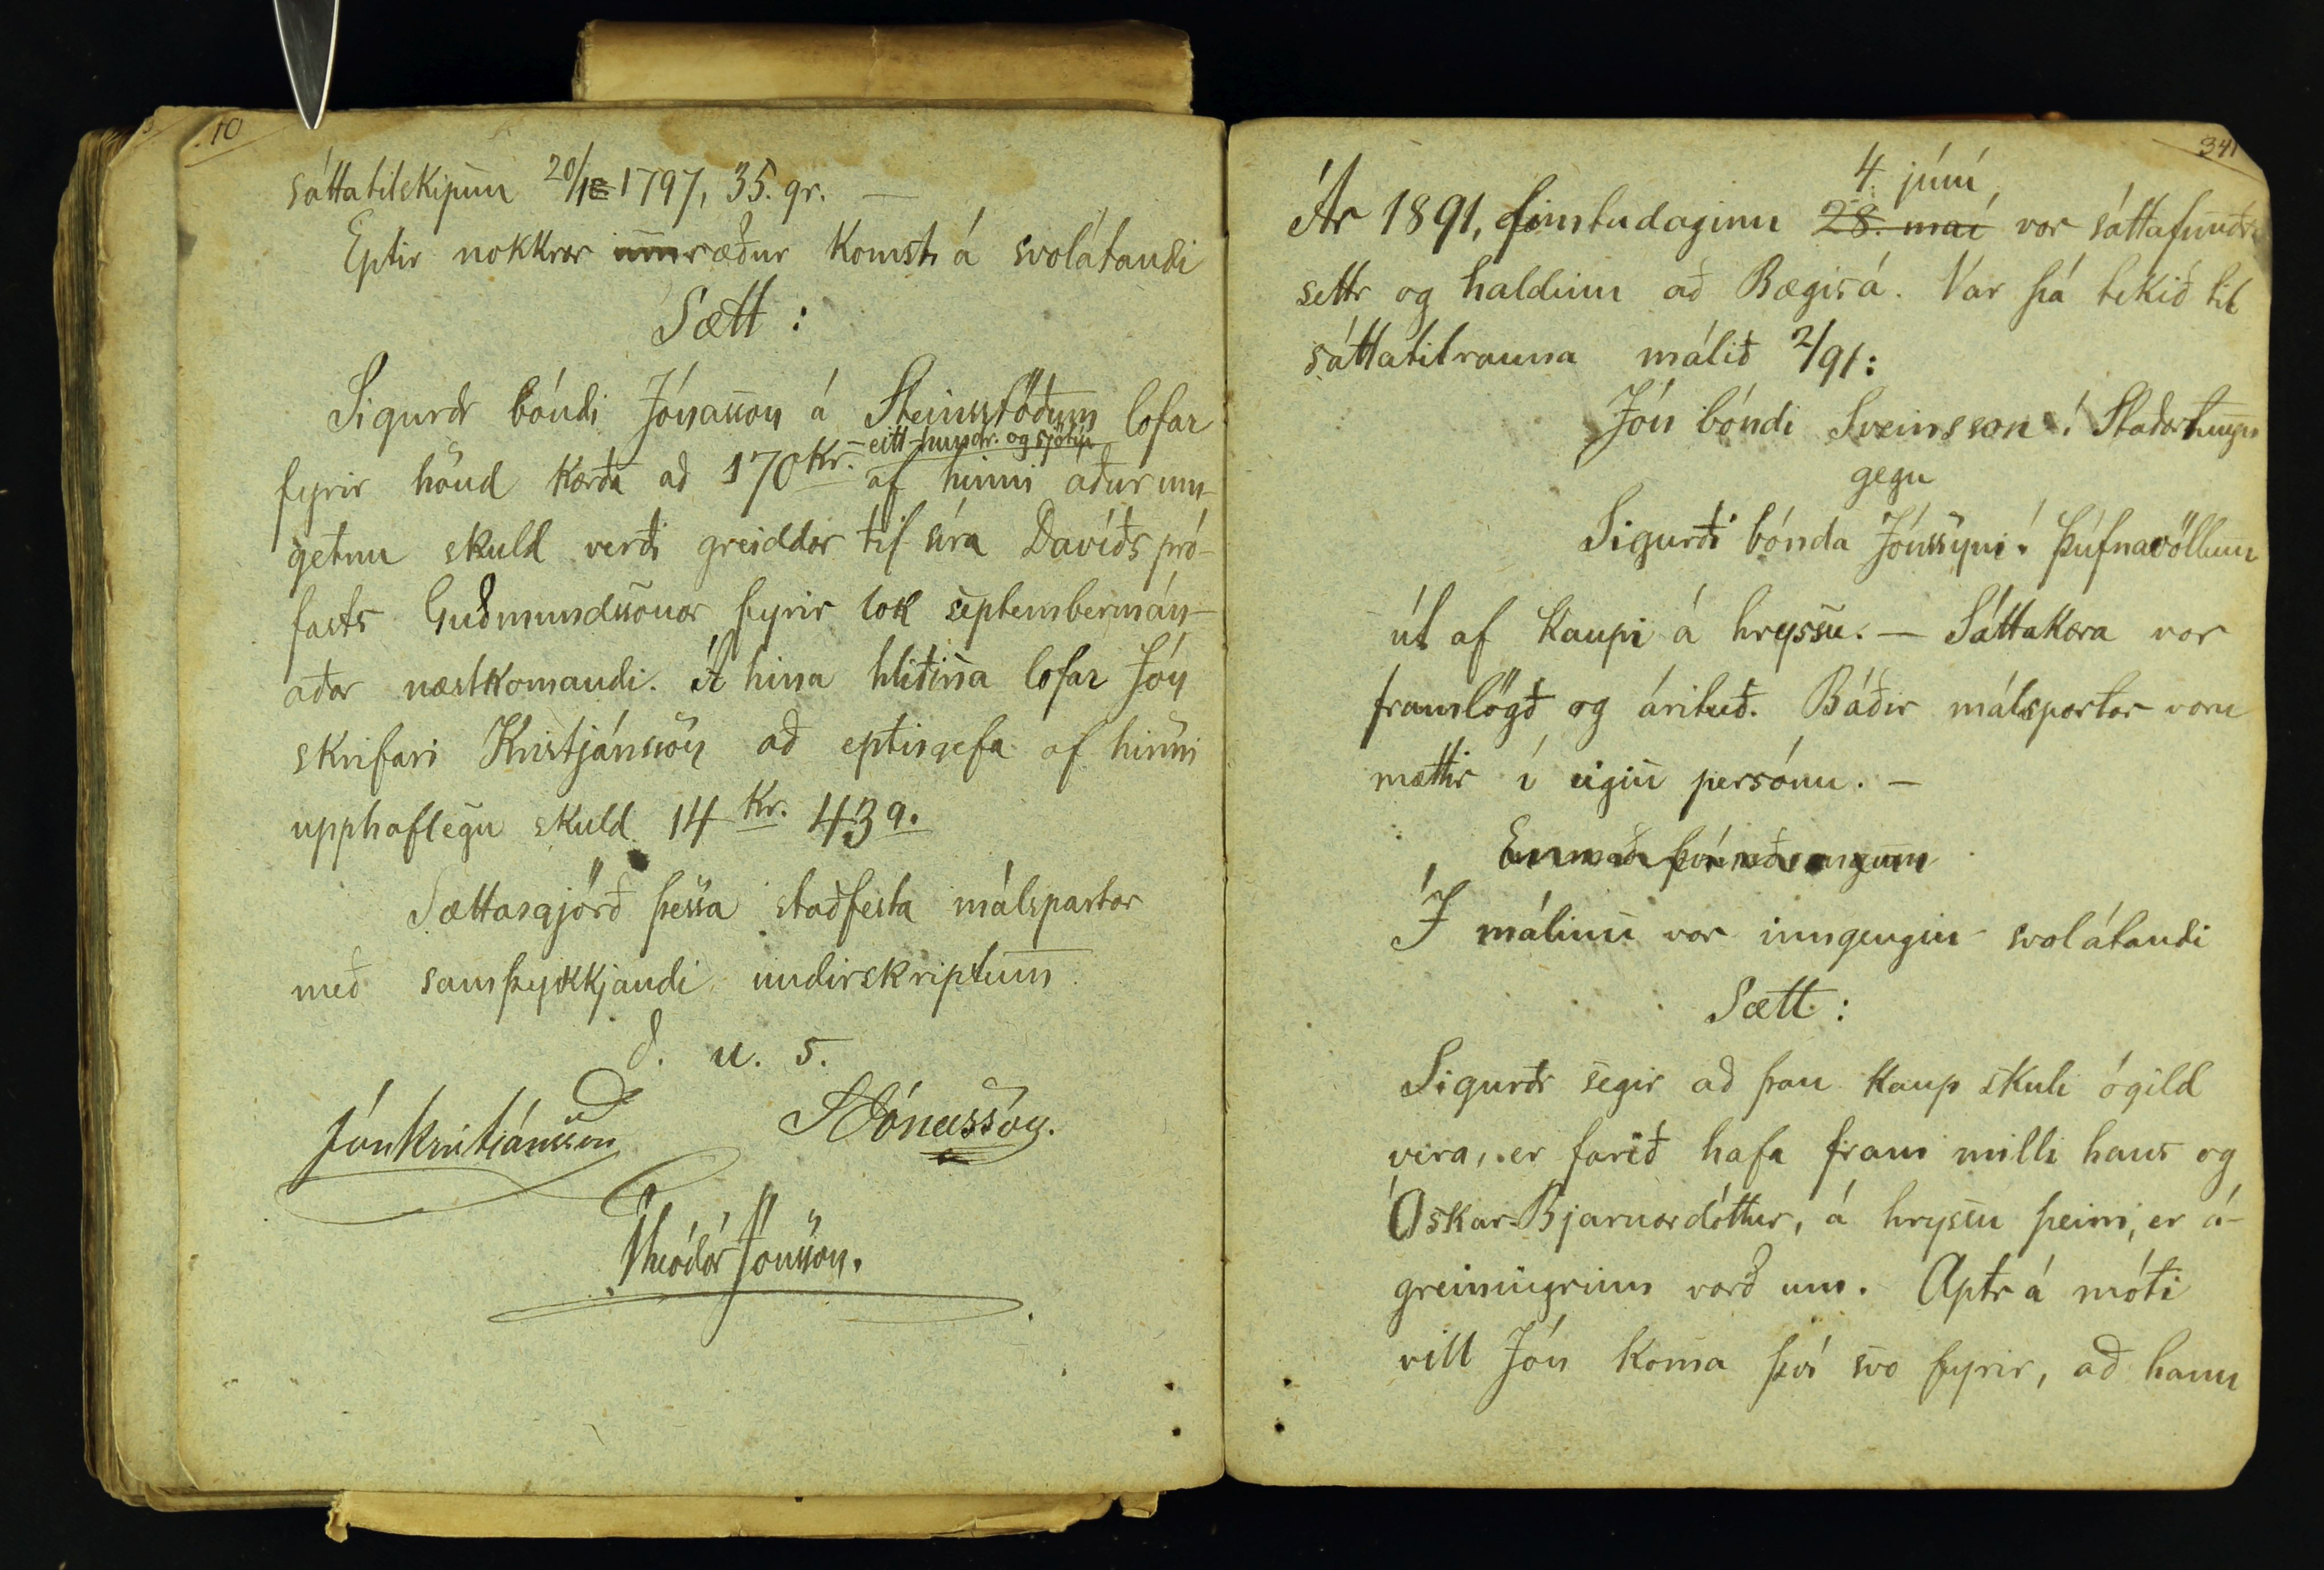 10
sáttatilskipun 20/1 1797, 35. gr. —
Eptir nokkrar umræður komst á svolátandi
Sætt:
Sigurðr bóndi Jónasson á Steinsstöðum lofar
eitt hundr. og sjötíu
fyrir hönd kærða að 170 kr. af hinni áður um-
getnu skuld verði greiddar til síra Davíðs pró-
fasts Guðmundssonar fyrir lok septembermán-
aðar næstkomandi. Á hina hliðina lofar Jón
skrifari Kristjánsson að eptirgefa af hinni
upphaflegu skuld 14 kr. 43 a.
Sættargjörð þessa staðfesta málspartar
með samþykkjandi undirskriptum
d. u. s.
Jón Kristjánsson SJónasson.
Theódór Jónsson.
341
4. júní
Ár 1891, fimtudaginn 28. maí var sáttafundr
settr og haldinn að Bægisá. Var þá tekið til
sáttatilrauna málið 2/91:
Jón bóndi Sveinsson í Staðartungu
gegn
Sigurði bónda Jónssyni í Þúfnavöllum
út af kaupi á hryssu. — Sáttakæra var
framlögð og árituð. Báðir málspartar voru
mættir í eigin persónu. —
Í málinu var inngengin svolátandi
Sætt:
Sigurðr segir að þau kaup skuli ógild
vera, er farið hafa fram milli hans og
Óskar Bjarnardóttur, á hryssu þeirri, er á-
greiningrinn varð um. Aptr á móti
vill Jón koma því svo fyrir, að hann